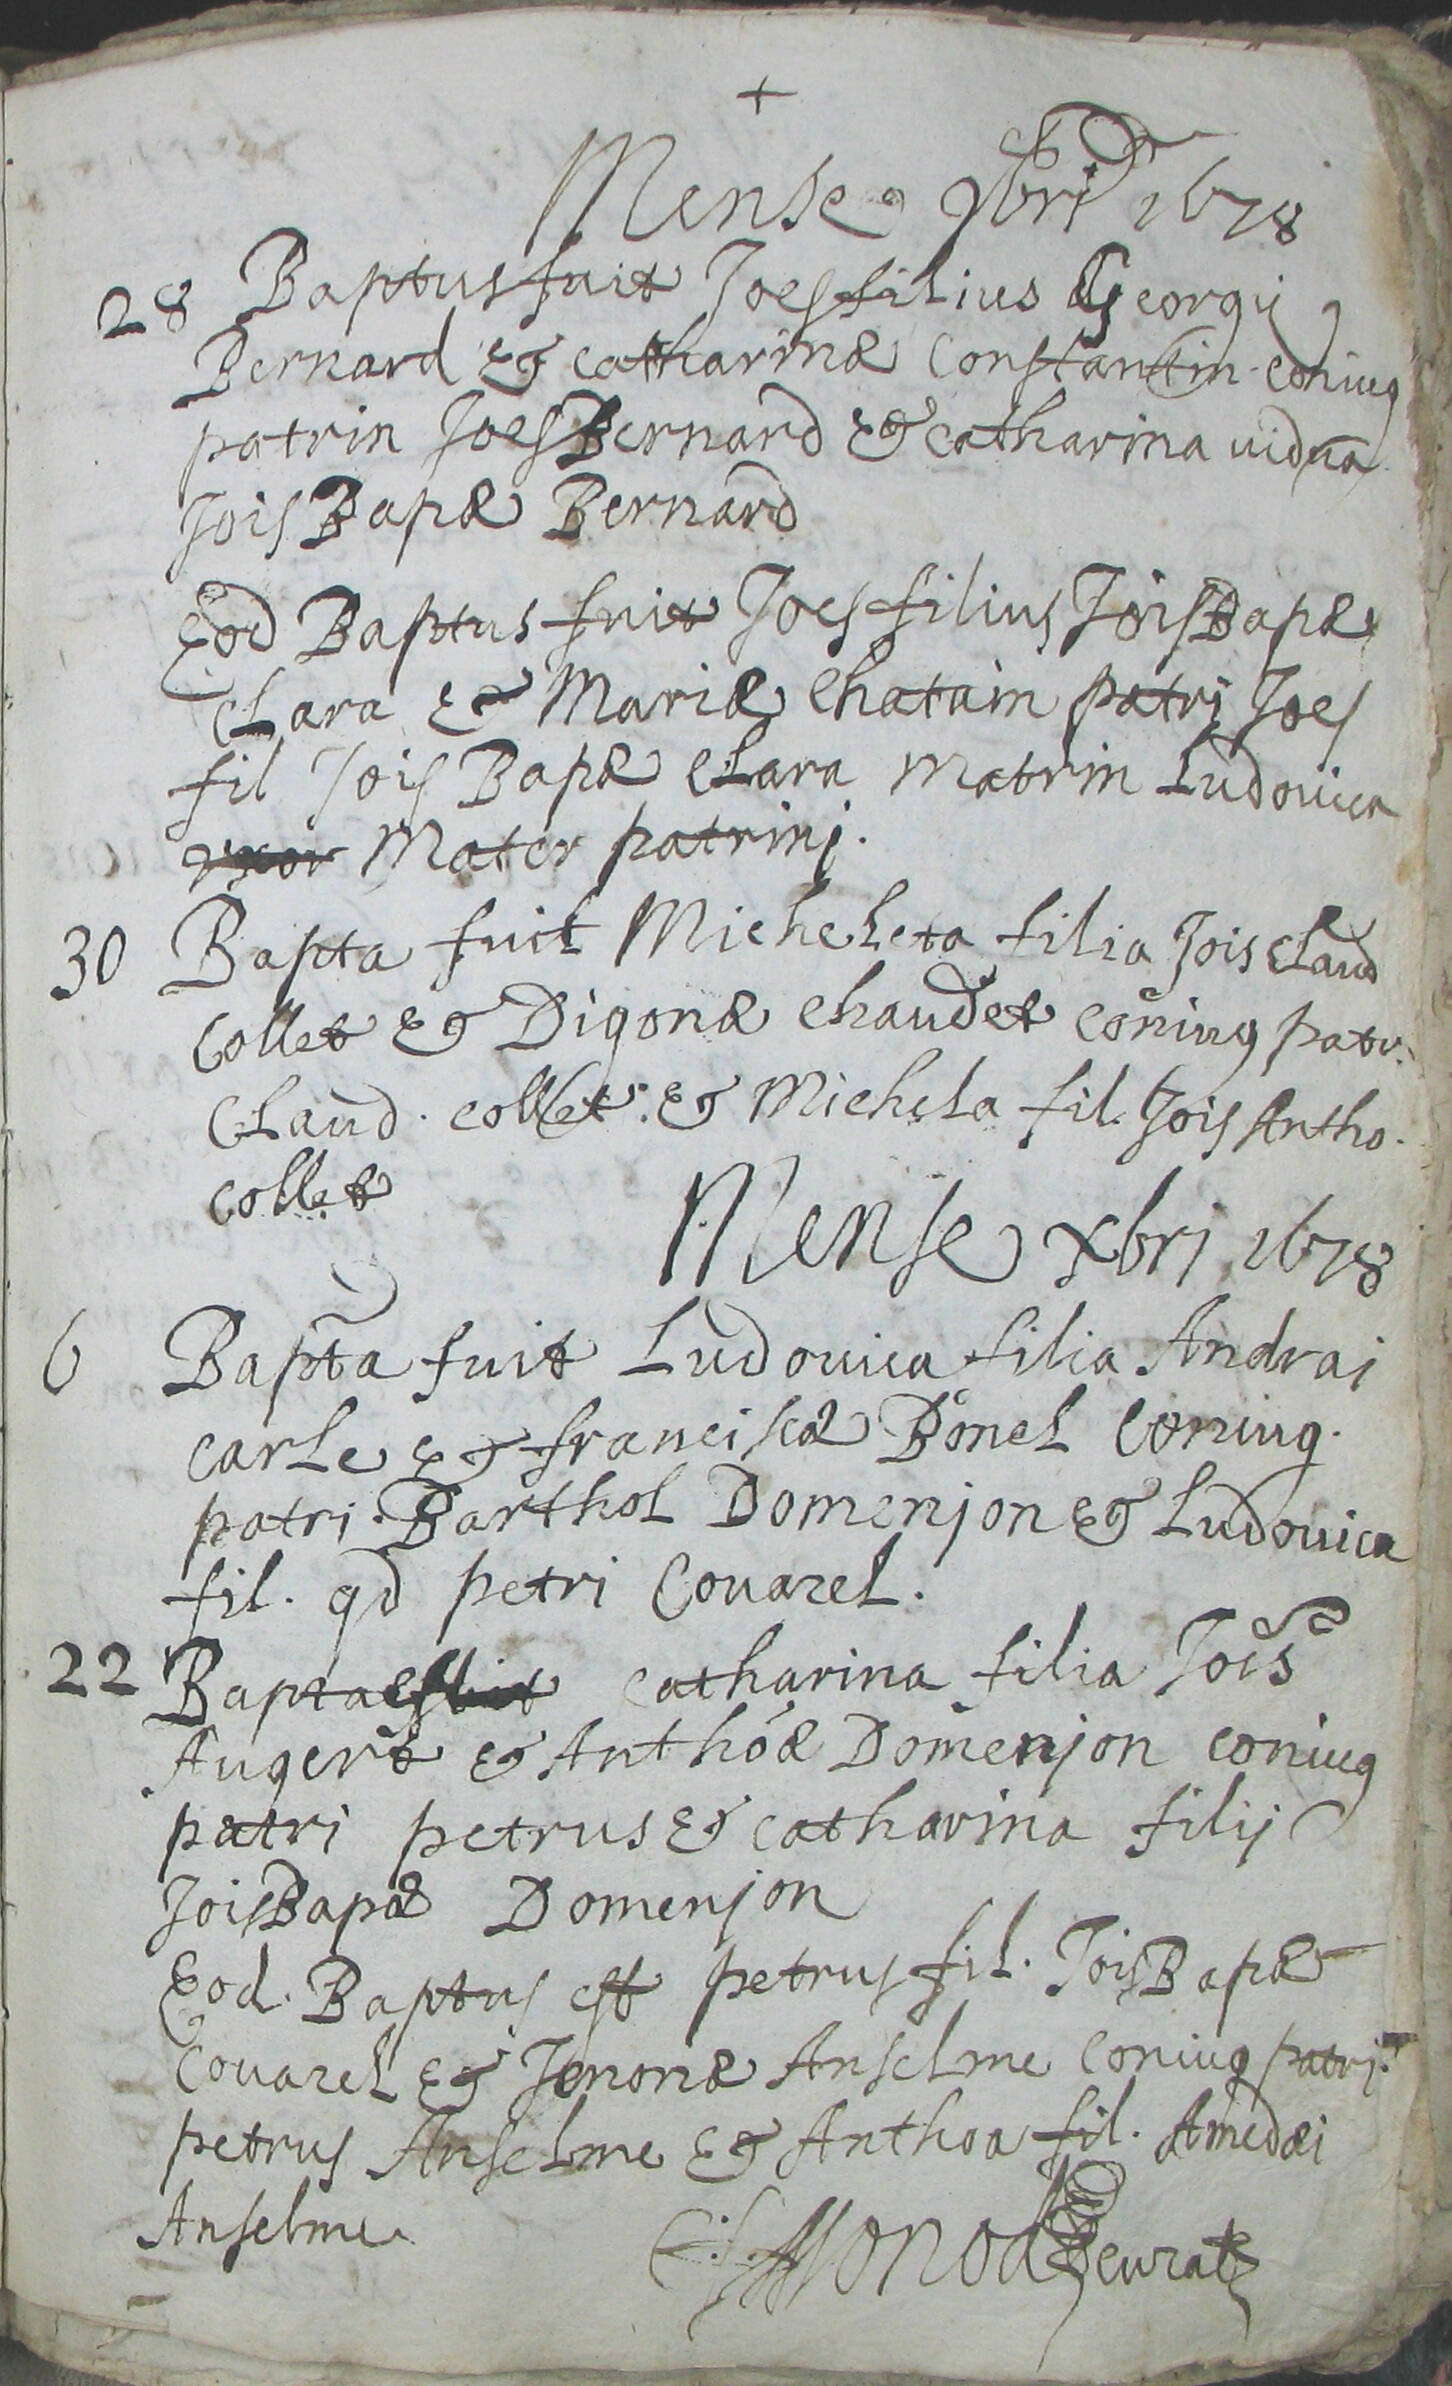 +
Mense 9bri 1678
28 Baptus fuit Joes filius Georgij
Bernard & catharinæ Constantin coniug
patrin Joes Bernard & catharina uidua
Jois Bapæ Bernard
Eod Baptus fuit Joes filius Jois Bapæ
Clara & Mariæ Chatain patri Joes
fil Jois Bapæ Clara Matrin Ludouica
uxor Mater patrinj.
30 Bapta fuit Micheleta filia Jois Claud
Collet & Digonæ Chaudet coniug patr.
Claud. collet. & Michela fil. Jois Antho.
Collet
Mense xbrj 1678
6 Bapta fuit Ludouica filia Andrai
Carle & franciscæ Bonel Coniug.
patri. Barthol Domenjon & Ludouica
fil. qd petri Couarel.
22 Bapta est catharina filia Jois
Augert & Anthoæ Domenjon coniug
patri petrus & catharina filij
Jois Bapæ Domenjon
Eod. Baptus est petrus fil. Jois Bapæ
Couarel & Jenonæ Anselme coniug patrj.
petrus Anselme & Anthoa fil. Amedæi
Anselme
Monod curat